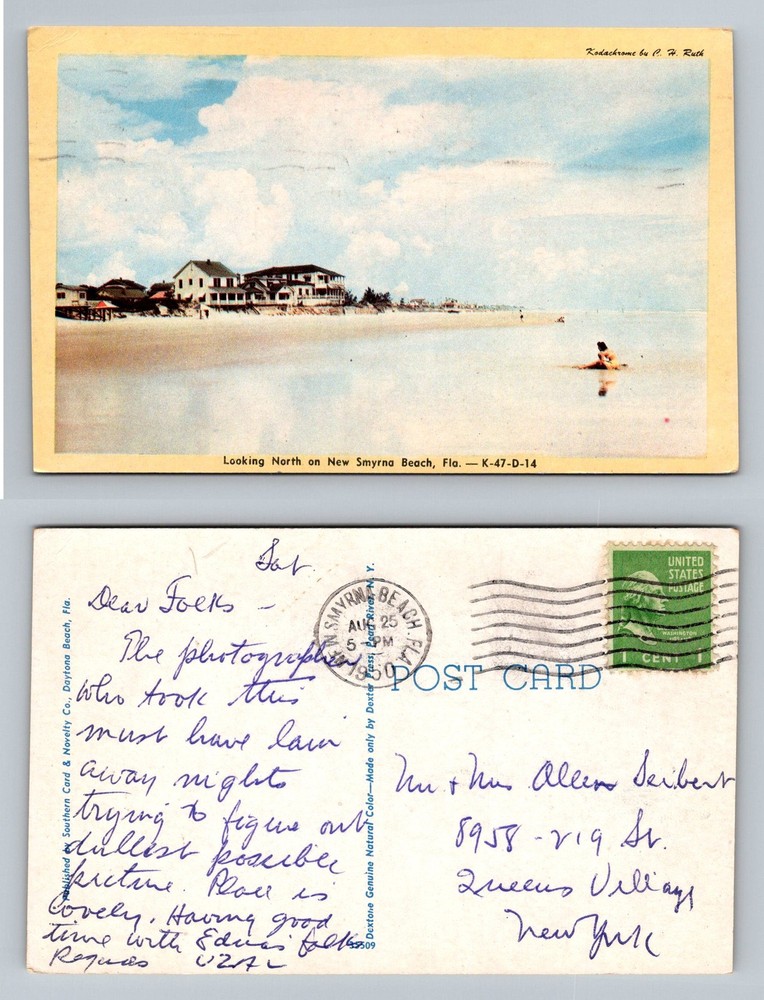 Kodachrome by C. H. Ruth
Looking North on New Smyrna Beach, Fla. — K-47-D-14
Sat
Dear Folks —
The photographer
who took this
must have lain
away nights
trying to figure out
dullest possible
picture. Place is
lovely. Having good
time with Edna's folks
Published by Southern Card & Novelty Co., Daytona Beach, Fla.
Dextone Genuine Natural Color—Made only by Dexter Press, Pearl River, N. Y.
35509
N SMYRNA BEACH, FLA.
AUG 25
5 PM
1950
UNITED
STATES
POSTAGE
WASHINGTON
1 CENT 1
POST CARD
Mr + Mrs Allen Seibert
8958 - 219 St.
Queens Village
New York